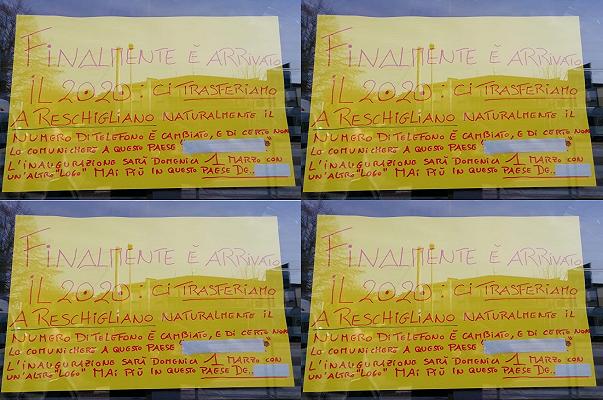 FINALMENTE È ARRIVATO
IL 2020: CI TRASFERIAMO
A RESCHIGLIANO NATURALMENTE IL
NUMERO DI TELEFONO È CAMBIATO, E DI CERTO NON
LO COMUNICHERÒ A QUESTO PAESE
L'INAUGURAZIONE SARÀ DOMENICA 1 MARZO CON
UN'ALTRO "LOGO" MAI PIÙ IN QUESTO PAESE DE..
FINALMENTE È ARRIVATO
IL 2020: CI TRASFERIAMO
A RESCHIGLIANO NATURALMENTE IL
NUMERO DI TELEFONO È CAMBIATO, E DI CERTO NON
LO COMUNICHERÒ A QUESTO PAESE
L'INAUGURAZIONE SARÀ DOMENICA 1 MARZO CON
UN'ALTRO "LOGO" MAI PIÙ IN QUESTO PAESE DE..
FINALMENTE È ARRIVATO
IL 2020: CI TRASFERIAMO
A RESCHIGLIANO NATURALMENTE IL
NUMERO DI TELEFONO È CAMBIATO, E DI CERTO NON
LO COMUNICHERÒ A QUESTO PAESE
L'INAUGURAZIONE SARÀ DOMENICA 1 MARZO CON
UN'ALTRO "LOGO" MAI PIÙ IN QUESTO PAESE DE..
FINALMENTE È ARRIVATO
IL 2020: CI TRASFERIAMO
A RESCHIGLIANO NATURALMENTE IL
NUMERO DI TELEFONO È CAMBIATO, E DI CERTO NON
LO COMUNICHERÒ A QUESTO PAESE
L'INAUGURAZIONE SARÀ DOMENICA 1 MARZO CON
UN'ALTRO "LOGO" MAI PIÙ IN QUESTO PAESE DE..